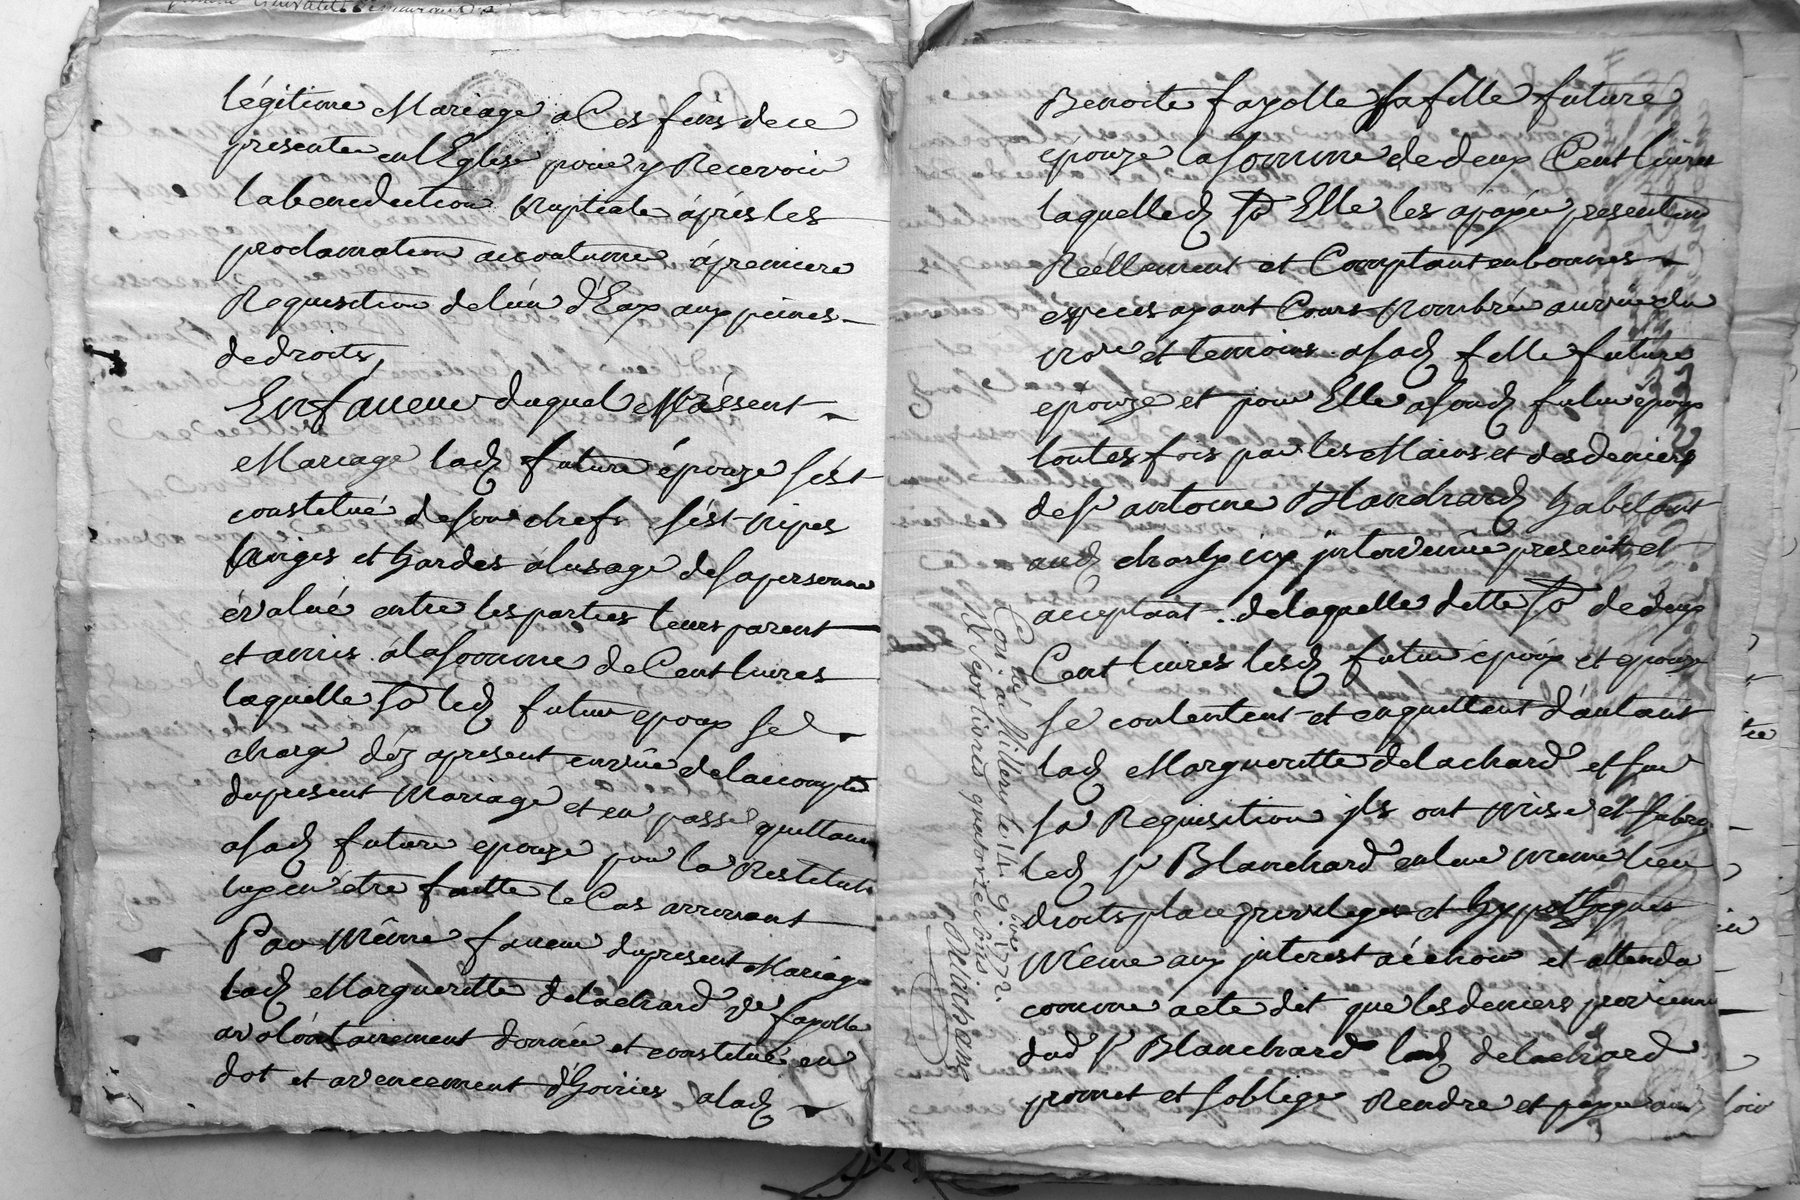 légitime Mariage a Ces fins de ce
presenter en l'Eglise pour y Recevoir
la benediction Nuptiale áprés les
proclamation accoutumé á premiere
Requisition de lún d'Eax aux peines
de droits,
En faueur duquel Maresent
Mariage ladᵉ future épouze s'ést
constitué de son chef ses nipes
linges et hardes álusage de sa personne
évalué entre les parties leurs parent
et amis á la somme de Cent livres
laquelle So ledᵗ futur epoux se
charge déz apresent en vüe de laccomplis
du present Mariage et en passe quittance
a sadᵉ future epouze pour la Restituti
luy en etre faitte le Cas arrivant
Par Même faueur du present Mariage
ladᵉ Margueritte delachard Ve fayolle
a volontairement donnée et constitué en
dot et avencement d'hoiries a ladᵉ
Benoite fayolle sa fille future
epouze la somme de deux Cent livres
laquelle dᵉ So Elle les a payée presentem
Réellement et Comptant en bonnes
especes ayant Cours Nombrée au vüe du
noʳᵉ et temoins a sadᵉ fille future
epouze et pour Elle a sondᵗ futur époux
toutes fois par les Mains et des deniers
de sʳ antoine Blanchardᵗ habitant
audᵗ icy intervenüe present et
acceptant de laquelle dette So de deux
Cent livres lesdᵗ futur époux et epouze
se contentent et en quittent d'autant
ladᵉ Margueritte delachard et sur
sa Requisition jls ont mise et subrogé
ledᵗ sʳ Blanchard en leur meme lieu
droits place privileges et hypotheques
Même aux jnterest a échoir et attendu
comme acte dit que les deniers provienne
dud sʳ Blanchard ladᵉ delachard
promet et soblige Rendre et payer au
Con. á Millery le 11 9bre 1772.
quatorze sols